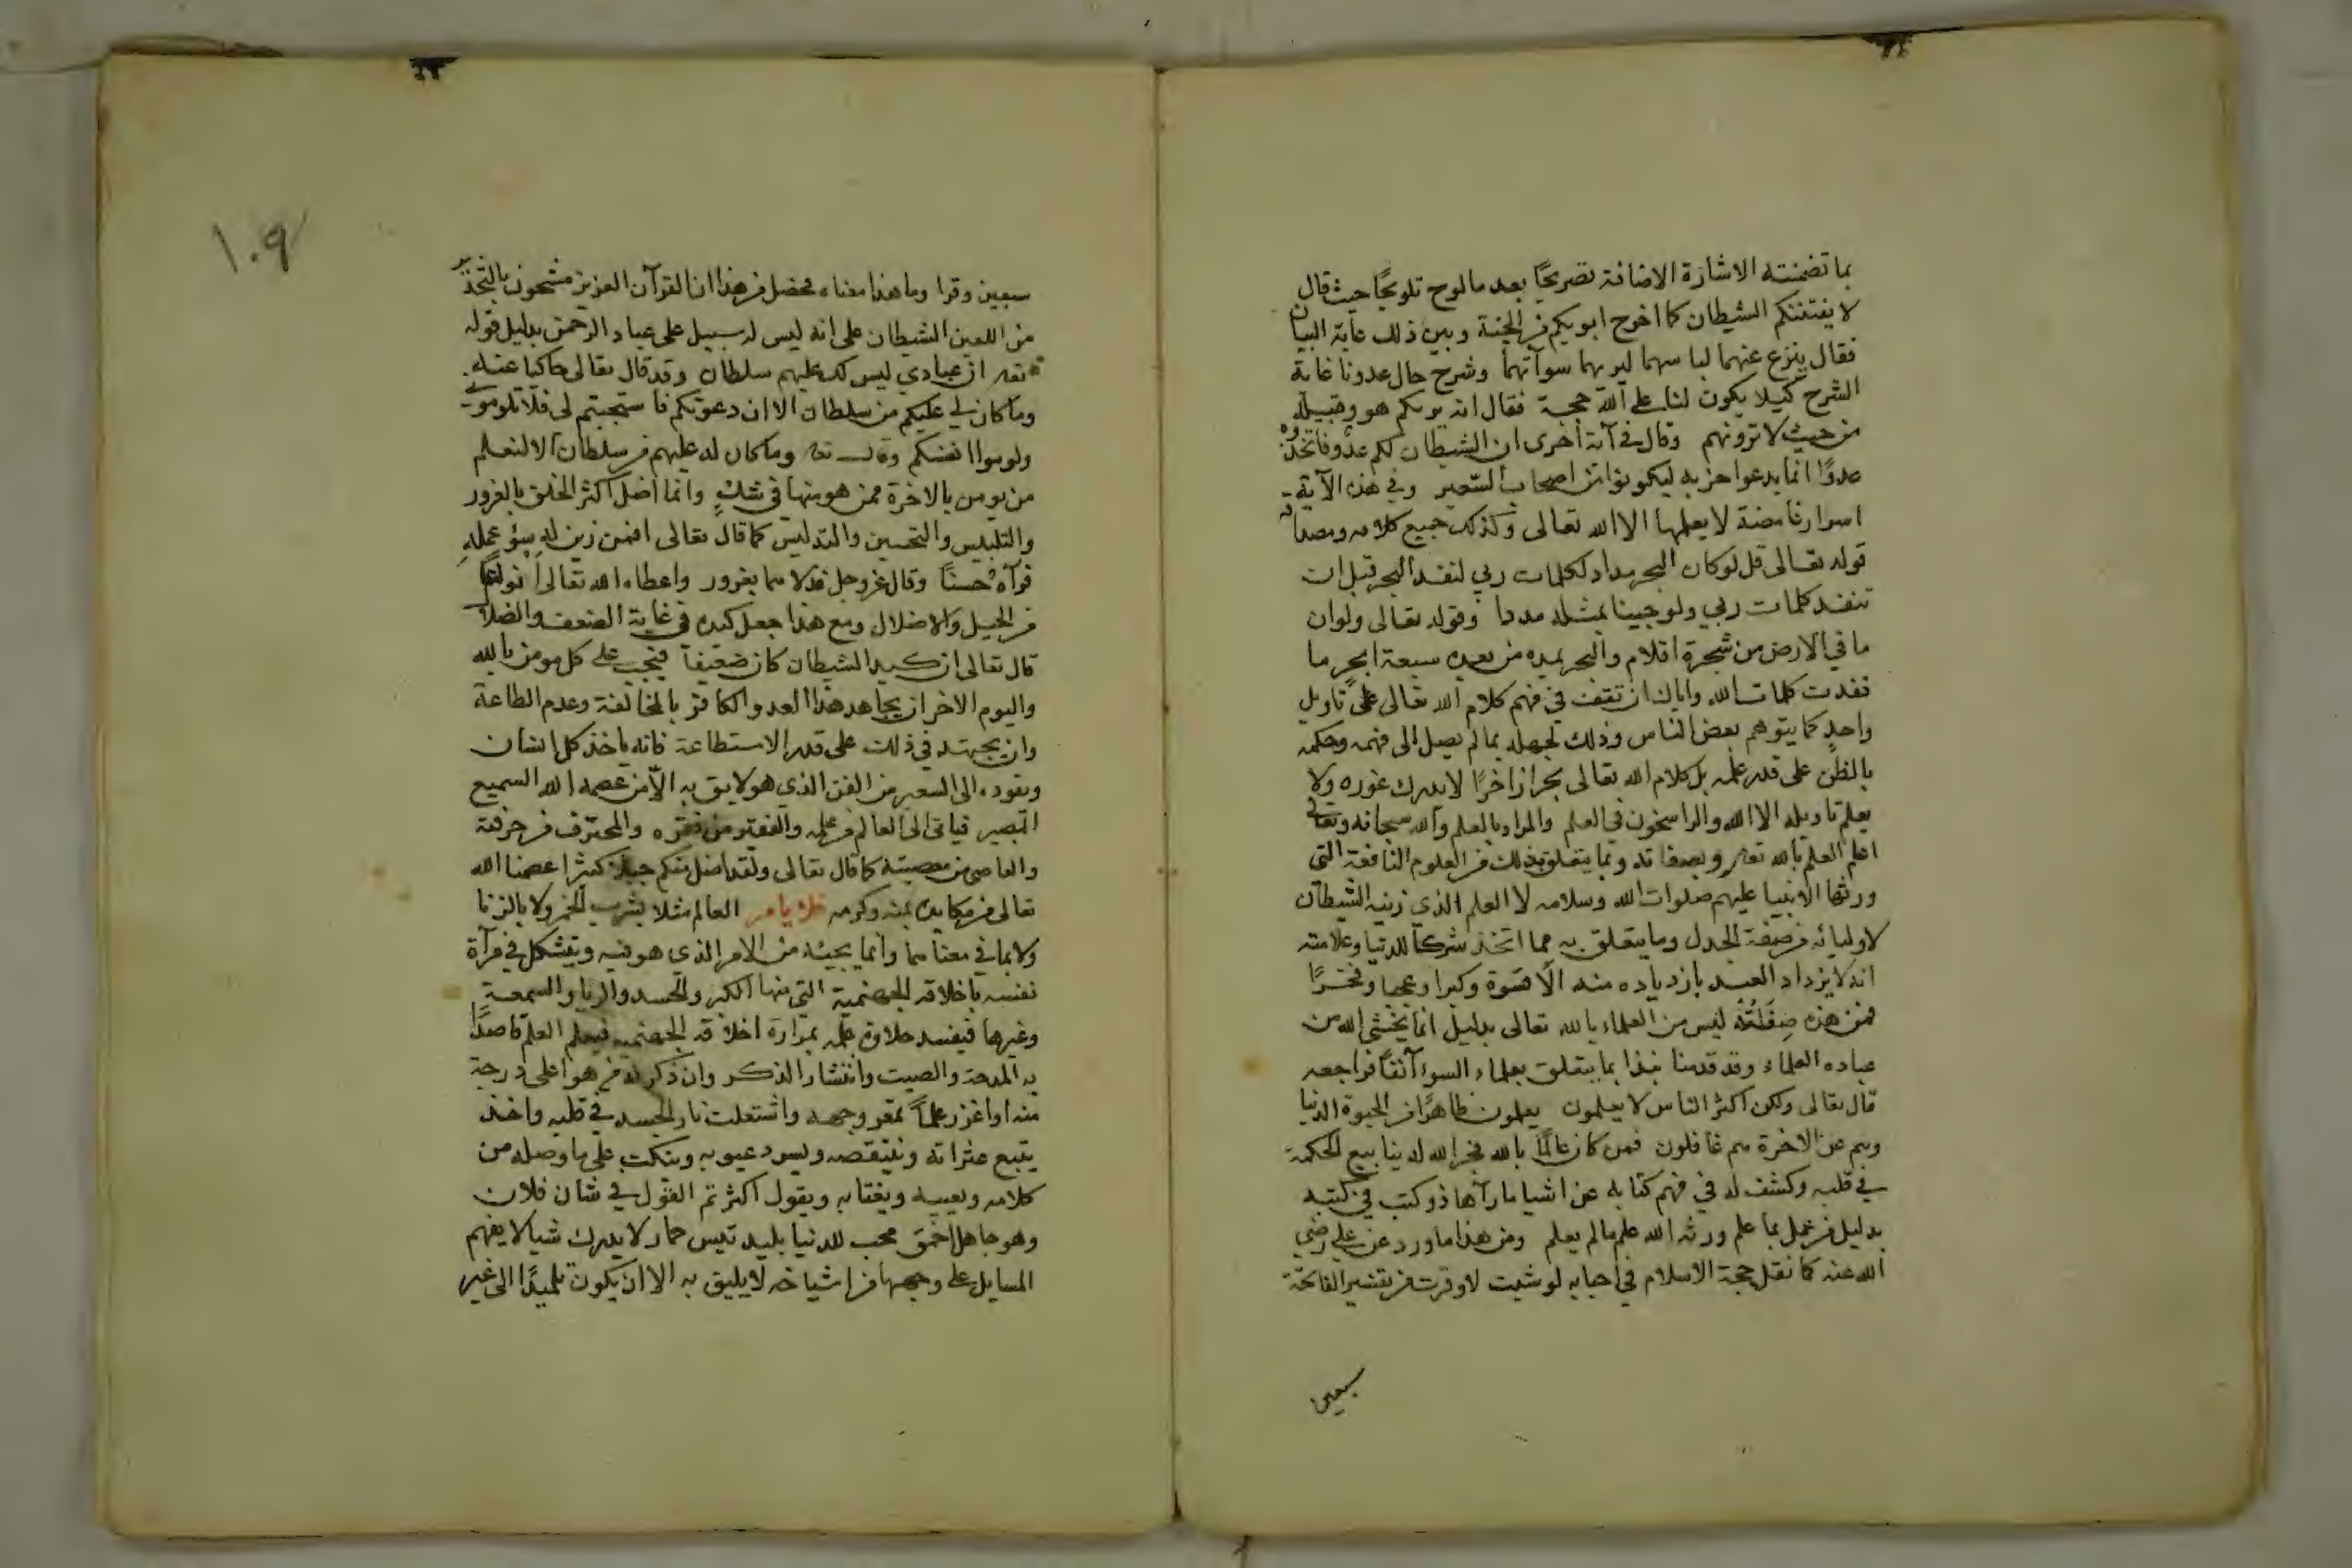 بما تضمنته الاشارة الاضافة تصريحًا بعد ما لوح تلويحًا حيث قال
لا يفتننكم الشيطان كما اخرج ابويكم من الجنة وبين ذلك غاية البيان
فقال ينزع عنهما لباسهما ليريهما سوآتهما وشرح حال عدونا غاية
الشرح كيلا يكون لنا على الله حجة فقال انه يريكم هو وقبيله
من حيث لا ترونهم وقال في آية أخرى ان الشيطان لكم عدو فاتخذوه
عدوًا انما يدعوا حزبه ليكونوا من اصحاب السّعير وفي هذه الآية
اسرار غامضة لا يعلمها الا الله تعالى وكذلك جميع كلامه ومصداقه
قوله تعالى قل لو كان البحر مداد لكلمات ربي لنفد البحر قبل ان
تنفد كلمات ربي ولو جينا بمثله مددا وقوله تعالى ولو ان
ما في الارض من شجرة اقلام والبحر يمده من بعده سبعة ابحر ما
نفدت كلمات الله واياك ان تقف في فهم كلام الله تعالى على تاويل
واحدٍ كما يتوهم بعض الناس وذلك لجهله بما لم يصل الى فهمه وحكمه
بالظن على قدر علمه بل كلام الله تعالى بحرا زاخرًا لا يدرك غوره ولا
يعلم تاويله الا الله والراسخون في العلم والمراد بالعلم والله سبحانه وتعالى
اعلم العلم بالله تعا وبصفاته وبما يتعلق بذلك من العلوم النافعة التي
ورثها الانبيا عليهم صلوات الله وسلامه لا العلم الذي زينه الشيطان
لاوليائه من صفة الجدل وما يتعلق به مما اتخذ شركًا للدنيا وعلامته
انه لا يزداد العبد بازدياده منه الّا قسوة وكبرا وعجبا وفخرًا
فمن هذه صفته ليس من العلماء بالله تعالى بدليل انما يخشى الله من
عباده العلماء وقد قدمنا نبذا بما يتعلق بعلماء السوء آنفًا فراجعه
قال تعالى ولكن اكثر الناس لا يعلمون يعلمون ظاهرًا من الحيوة الدنيا
وهم عن الاخرة هم غافلون فمن كان عالمًا بالله فجر الله له ينابيع الحكمة
في قلبه وكشف له في فهم كتابه عن اشيا ما رآها ذو كتب في كتبه
بدليل من عمل بما علم ورثه الله علم ما لم يعلم ومن هذا ما ورد عن علي رضي
الله عنه كما نقل حجة الاسلام في احيايه لو شيت لاوقرت من تفسير الفاتحة
سبعين
١٠٩
سبعين وقرا وما هذا معناه فحصل من هذا ان القرآن العزيز مشحون بالتحذير
من اللعين الشيطان على انه ليس له سبيل على عباد الرحمن بدليل قوله
تعا ان عبادي ليس لك عليهم سلطان وقد قال تعالى حاكيا عنه
وما كان لي عليكم من سلطان الا ان دعوتكم فاستجبتم لي فلا تلوموني
ولوموا انفسكم وقال تعا وما كان له عليهم من سلطان الا لنعلم
من يومن بالاخرة ممن هو منها في شكٍ وانما اضل اكثر الخلق بالغرور
والتلبيس والتحسين والتدليس كما قال تعالى افمن زين له سوء عمله
فرآه حسنًا وقال عز وجل فدلاهما بغرور واعطاه الله تعالى
من الحيل والاضلال ومع هذا جعل كيده في غاية الضعف
قال تعالى ان كيد الشيطان كان ضعيفًا فيجب على كل مومن بالله
واليوم الاخر ان يجاهد هذا العدو الكافر بالمخالفة وعدم الطاعة
وان يجتهد في ذلك على قدر الاستطاعة فانه ياخذ كل انسان
ويقوده الى السعير من الفن الذي هو لايق به الّا من عصمه الله السميع
البصير فياتي الى العالم من علمه والفقير من فقره والمحترف من حرفته
والعاصي من معصيته كما قال تعالى ولقد اضل منكم جبلا كثيرا عصمنا الله
تعالى من مكايده بمنه وكرمه فلا يامر العالم مثلا بشرب الخمر ولا بالزنا
ولا بما في معناهما وانما يجيئه من الامر الذي هو فيه ويتشكل في مرآة
نفسه باخلاقه الجهنمية التي منها الكبر والحسد والريا والسمعة
وغيرها فيفسد حلاوة علمه بمرارة اخلاقه الجهنميه فيعلم العلم قاصدًا
به المدحة والصيت وانتشار الذكر وان ذكر له من هو اعلى درجة
منه او اغزر علمًا تمعر وجهه واشتعلت نار الحسد في قلبه واخذ
يتبع عثراته وينتقصه ويسرد عيوبه وينكت على ما وصله من
كلامه ويعيبه ويغتابه ويقول اكثرتم القول في شان فلان
وهو جاهل احمق محب للدنيا بليد تيس حمار لا يدرك شيا لا يفهم
المسايل على وجهها من اشياخه لا يليق به الا ان يكون تلميذًا الى غير